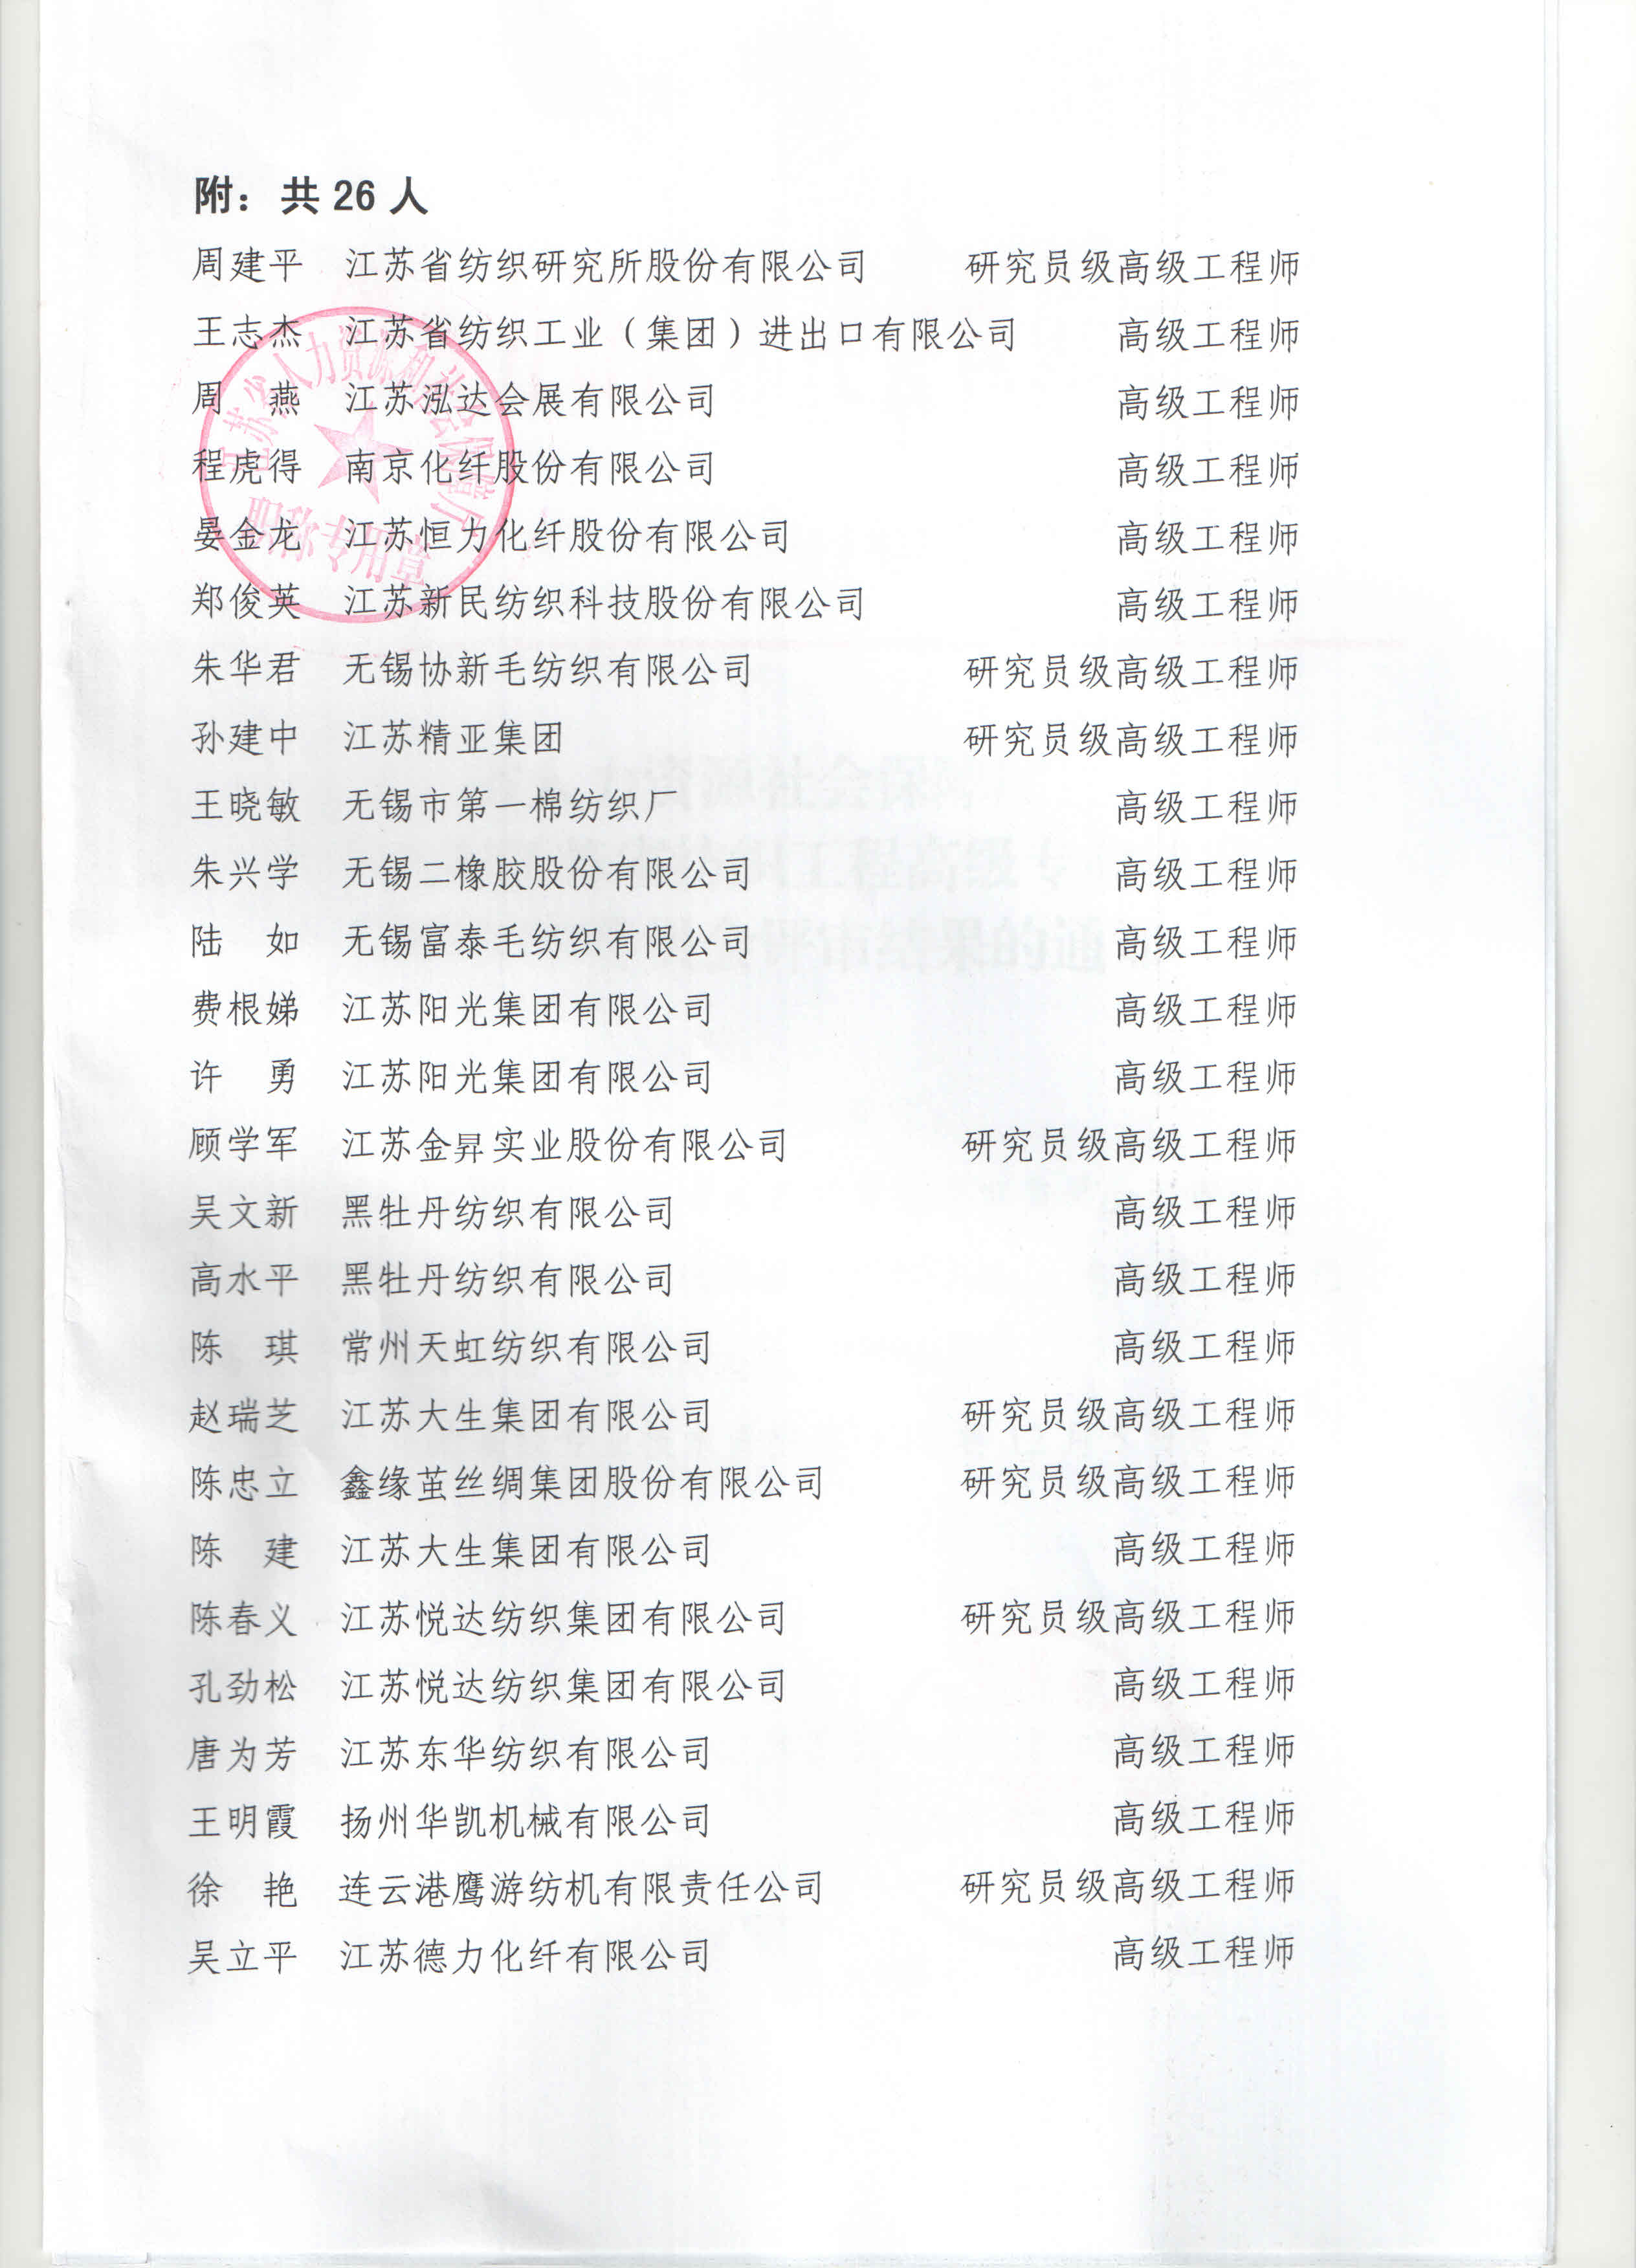 附：共 26 人
周建平 江苏省纺织研究所股份有限公司 研究员级高级工程师
王志杰 江苏省纺织工业（集团）进出口有限公司 高级工程师
周 燕 江苏泓达会展有限公司 高级工程师
程虎得 南京化纤股份有限公司 高级工程师
晏金龙 江苏恒力化纤股份有限公司 高级工程师
郑俊英 江苏新民纺织科技股份有限公司 高级工程师
朱华君 无锡协新毛纺织有限公司 研究员级高级工程师
孙建中 江苏精亚集团 研究员级高级工程师
王晓敏 无锡市第一棉纺织厂 高级工程师
朱兴学 无锡二橡胶股份有限公司 高级工程师
陆 如 无锡富泰毛纺织有限公司 高级工程师
费根娣 江苏阳光集团有限公司 高级工程师
许 勇 江苏阳光集团有限公司 高级工程师
顾学军 江苏金昇实业股份有限公司 研究员级高级工程师
吴文新 黑牡丹纺织有限公司 高级工程师
高水平 黑牡丹纺织有限公司 高级工程师
陈 琪 常州天虹纺织有限公司 高级工程师
赵瑞芝 江苏大生集团有限公司 研究员级高级工程师
陈忠立 鑫缘茧丝绸集团股份有限公司 研究员级高级工程师
陈 建 江苏大生集团有限公司 高级工程师
陈春义 江苏悦达纺织集团有限公司 研究员级高级工程师
孔劲松 江苏悦达纺织集团有限公司 高级工程师
唐为芳 江苏东华纺织有限公司 高级工程师
王明霞 扬州华凯机械有限公司 高级工程师
徐 艳 连云港鹰游纺机有限责任公司 研究员级高级工程师
吴立平 江苏德力化纤有限公司 高级工程师
江苏省人力资源和社会保障厅
职称专用章